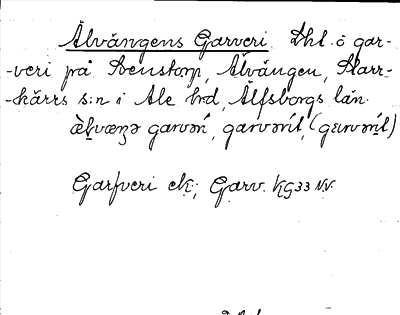 Älvängens Garveri. Lht. o gar-
-veri på Svenstorp, Älvängen, Starr-
-kärrs s:n i Ale hrd, Älfsborgs län.
garvəri, garvərit,
Garfveri ek; Garv. KG33 NV.